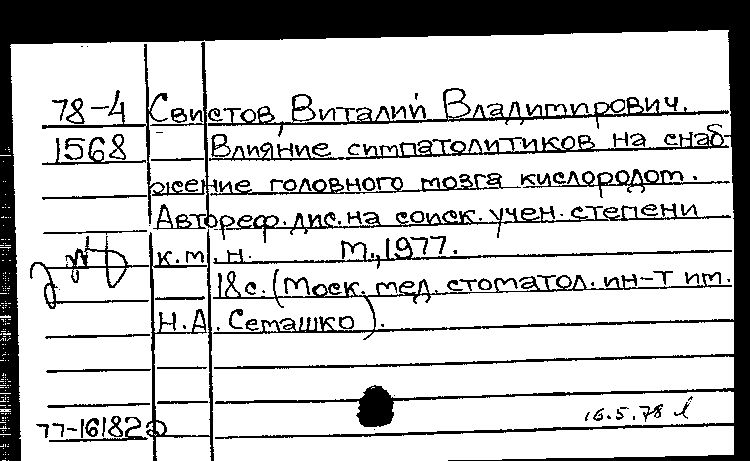 78-4 Свистов, Виталий Владимирович.
1568 Влияние симпатолитиков на снаб-
жение головного мозга кислородом.
Автореф. дис. на соиск. учен. степени
к.м.н. М., 1977.
18 с. (Моск. мед. стоматол. ин-т им.
Н.А. Семашко).
77-16182а
16.5.78